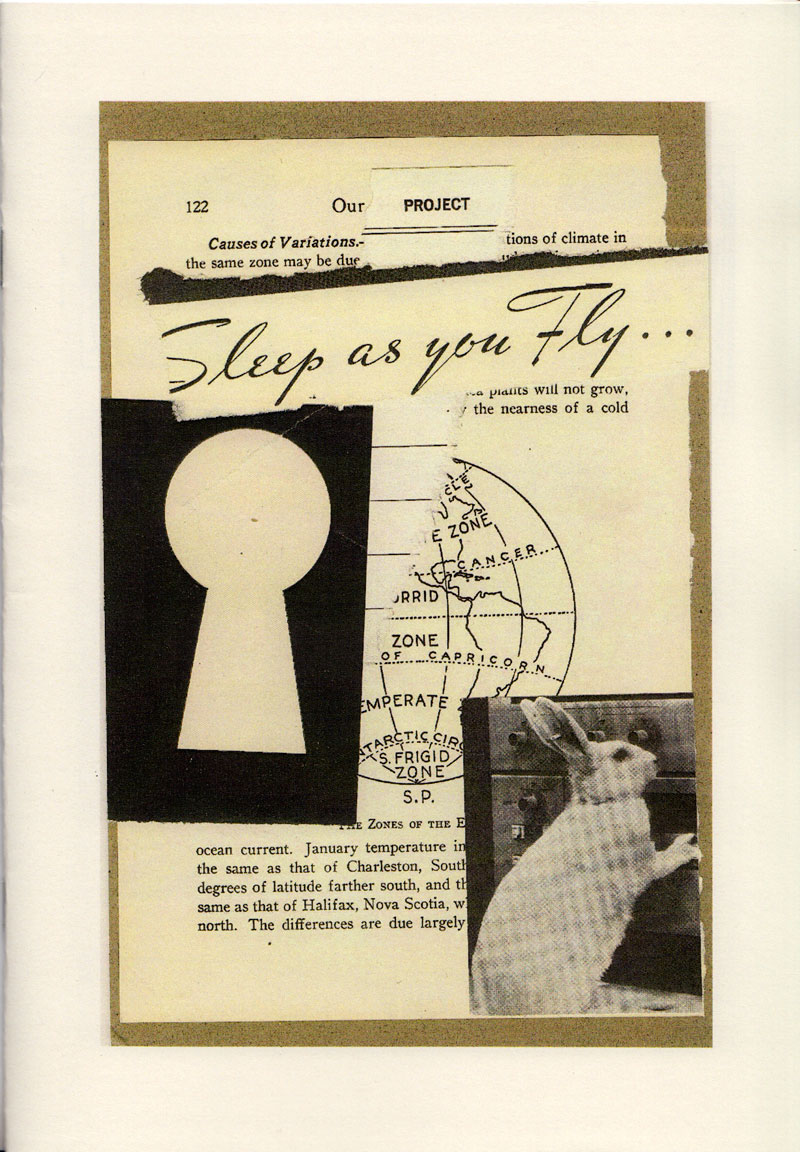 122 Our PROJECT
Causes of Variations.- tions of climate in
the same zone may be due
Sleep as you Fly...
plants will not grow,
the nearness of a cold
CLE
E ZONE
CANCER
RRID
ZONE
OF CAPRICORN
EMPERATE
NTARCTIC CIRC
S. FRIGID
ZONE
S.P.
THE ZONES OF THE E
ocean current. January temperature in
the same as that of Charleston, South
degrees of latitude farther south, and th
same as that of Halifax, Nova Scotia, w
north. The differences are due largely